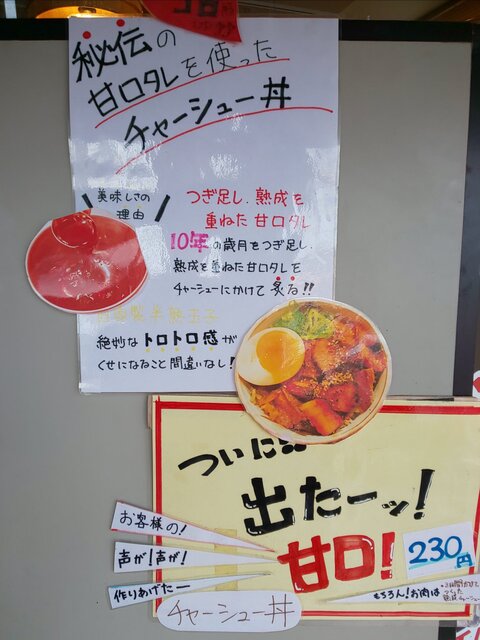 秘伝の
甘口タレを使った
チャーシュー丼
美味しさの
理由
つぎ足し、熟成を
重ねた甘口タレ
10年の歳月をつぎ足し、
熟成を重ねた甘口タレを
チャーシューにかけて炙る!!
絶妙なトロトロ感が
くせになること間違いなし!
ついに
出たーッ!
甘口!
230円
お客様の!
声が!声が!
作りあげたー
チャーシュー丼
もちろん!お肉は